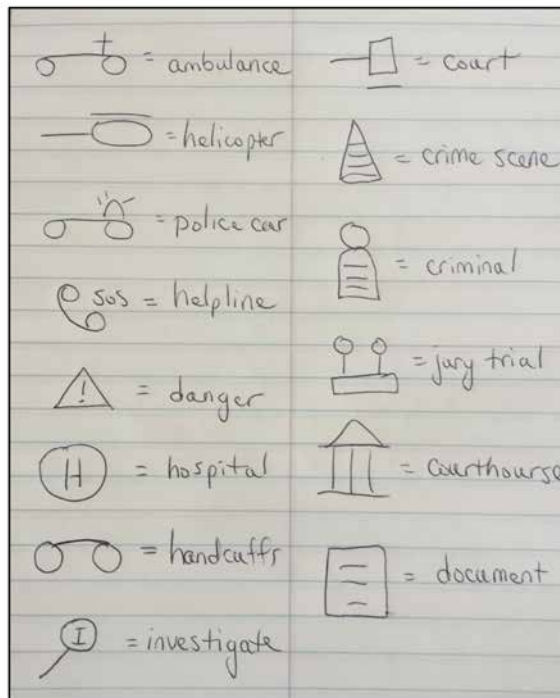 = ambulance
= helicopter
= police car
SOS = helpline
! = danger
H = hospital
= handcuffs
I = investigate
= court
= crime scene
= criminal
= jury trial
= courthourse
= document